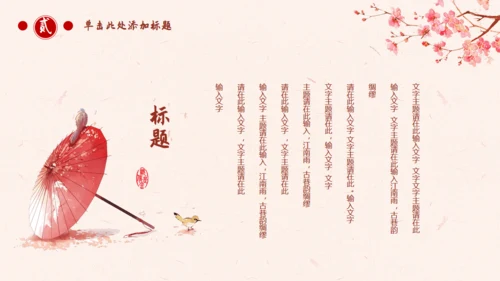 贰
单击此处添加标题
标题
文字主题请在此输入文字 文字文字主题请在此
输入文字 文字主题请在此输入，江南雨，古巷韵
绸缪
请在此输入文字 文字主题请在此。输入文字
文字主题请在此，输入文字 文字
主题请在此输入，江南雨，古巷韵绸缪
请在此输入文字，文字主题请在此
输入文字 主题请在此输入，江南雨，古巷韵绸缪
请在此输入文字，文字主题请在此
输入文字